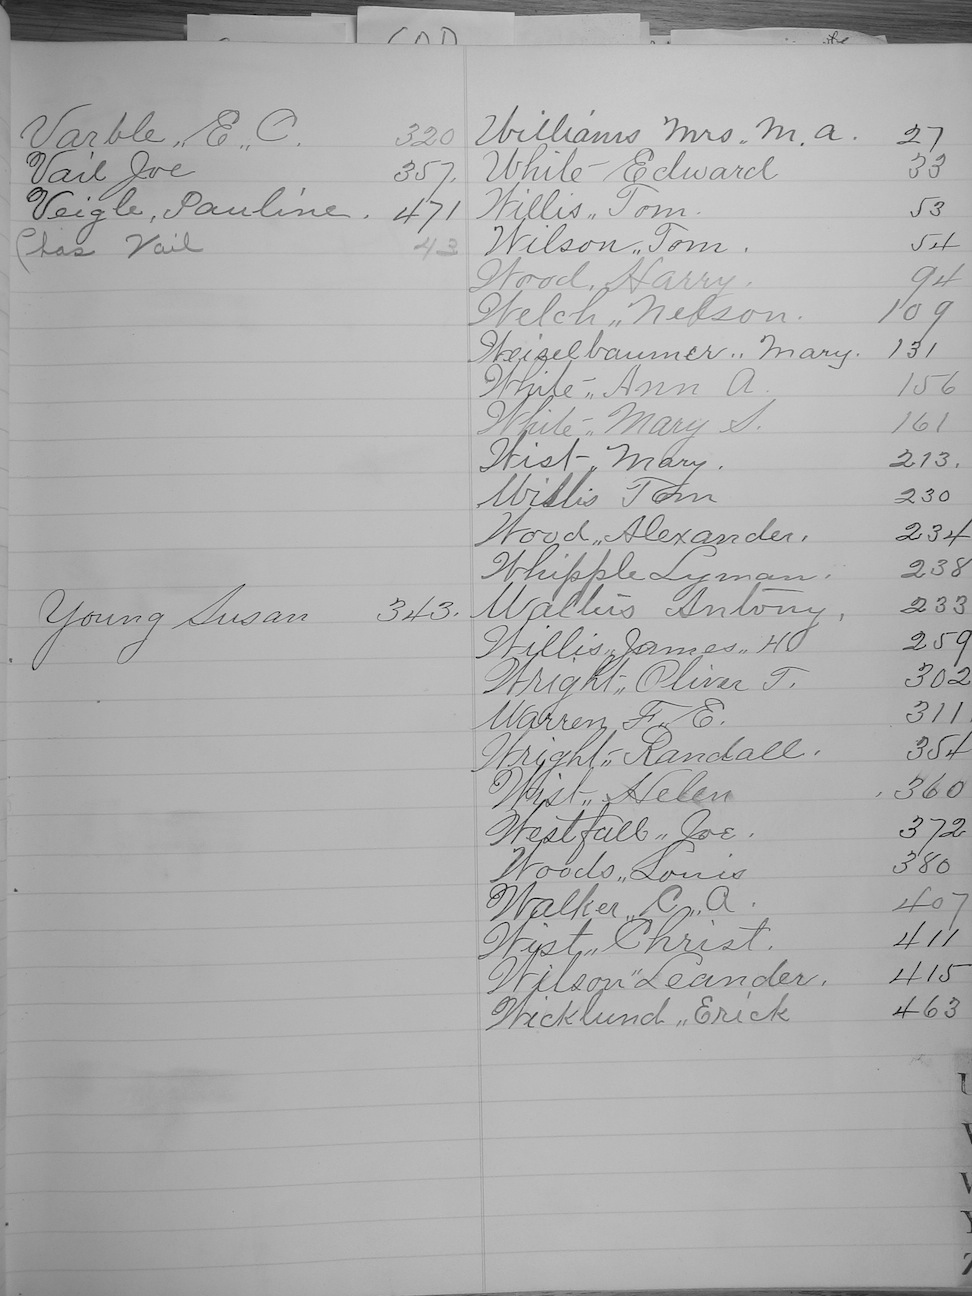 COD
Varble, E. C. 320
Vail Joe 357.
Veigle, Pauline. 471
Chas Vail 43
Young Susan 343.
Williams Mrs. M. A. 27
White Edward 33
Willis, Tom. 53
Wilson, Tom. 54
Wood, Harry. 94
Welch, Nelson. 109
Weiselbaumer, Mary. 131
White, Ann A. 156
White, Mary S. 161
Wist, Mary. 213.
Willis Tom 230
Wood, Alexander. 234
Whipple Lyman. 238
Wallus Antony, 233
Willis, James, 40 259
Wright, Oliver T. 302
Warren, F. E. 311
Wright, Randall. 354
Wist, Helen 360
Westfall, Joe. 372
Woods, Louis 380
Walker, C, A. 407
Wist, Christ. 411
Wilson, Leander. 415
Wicklund, Erick 463